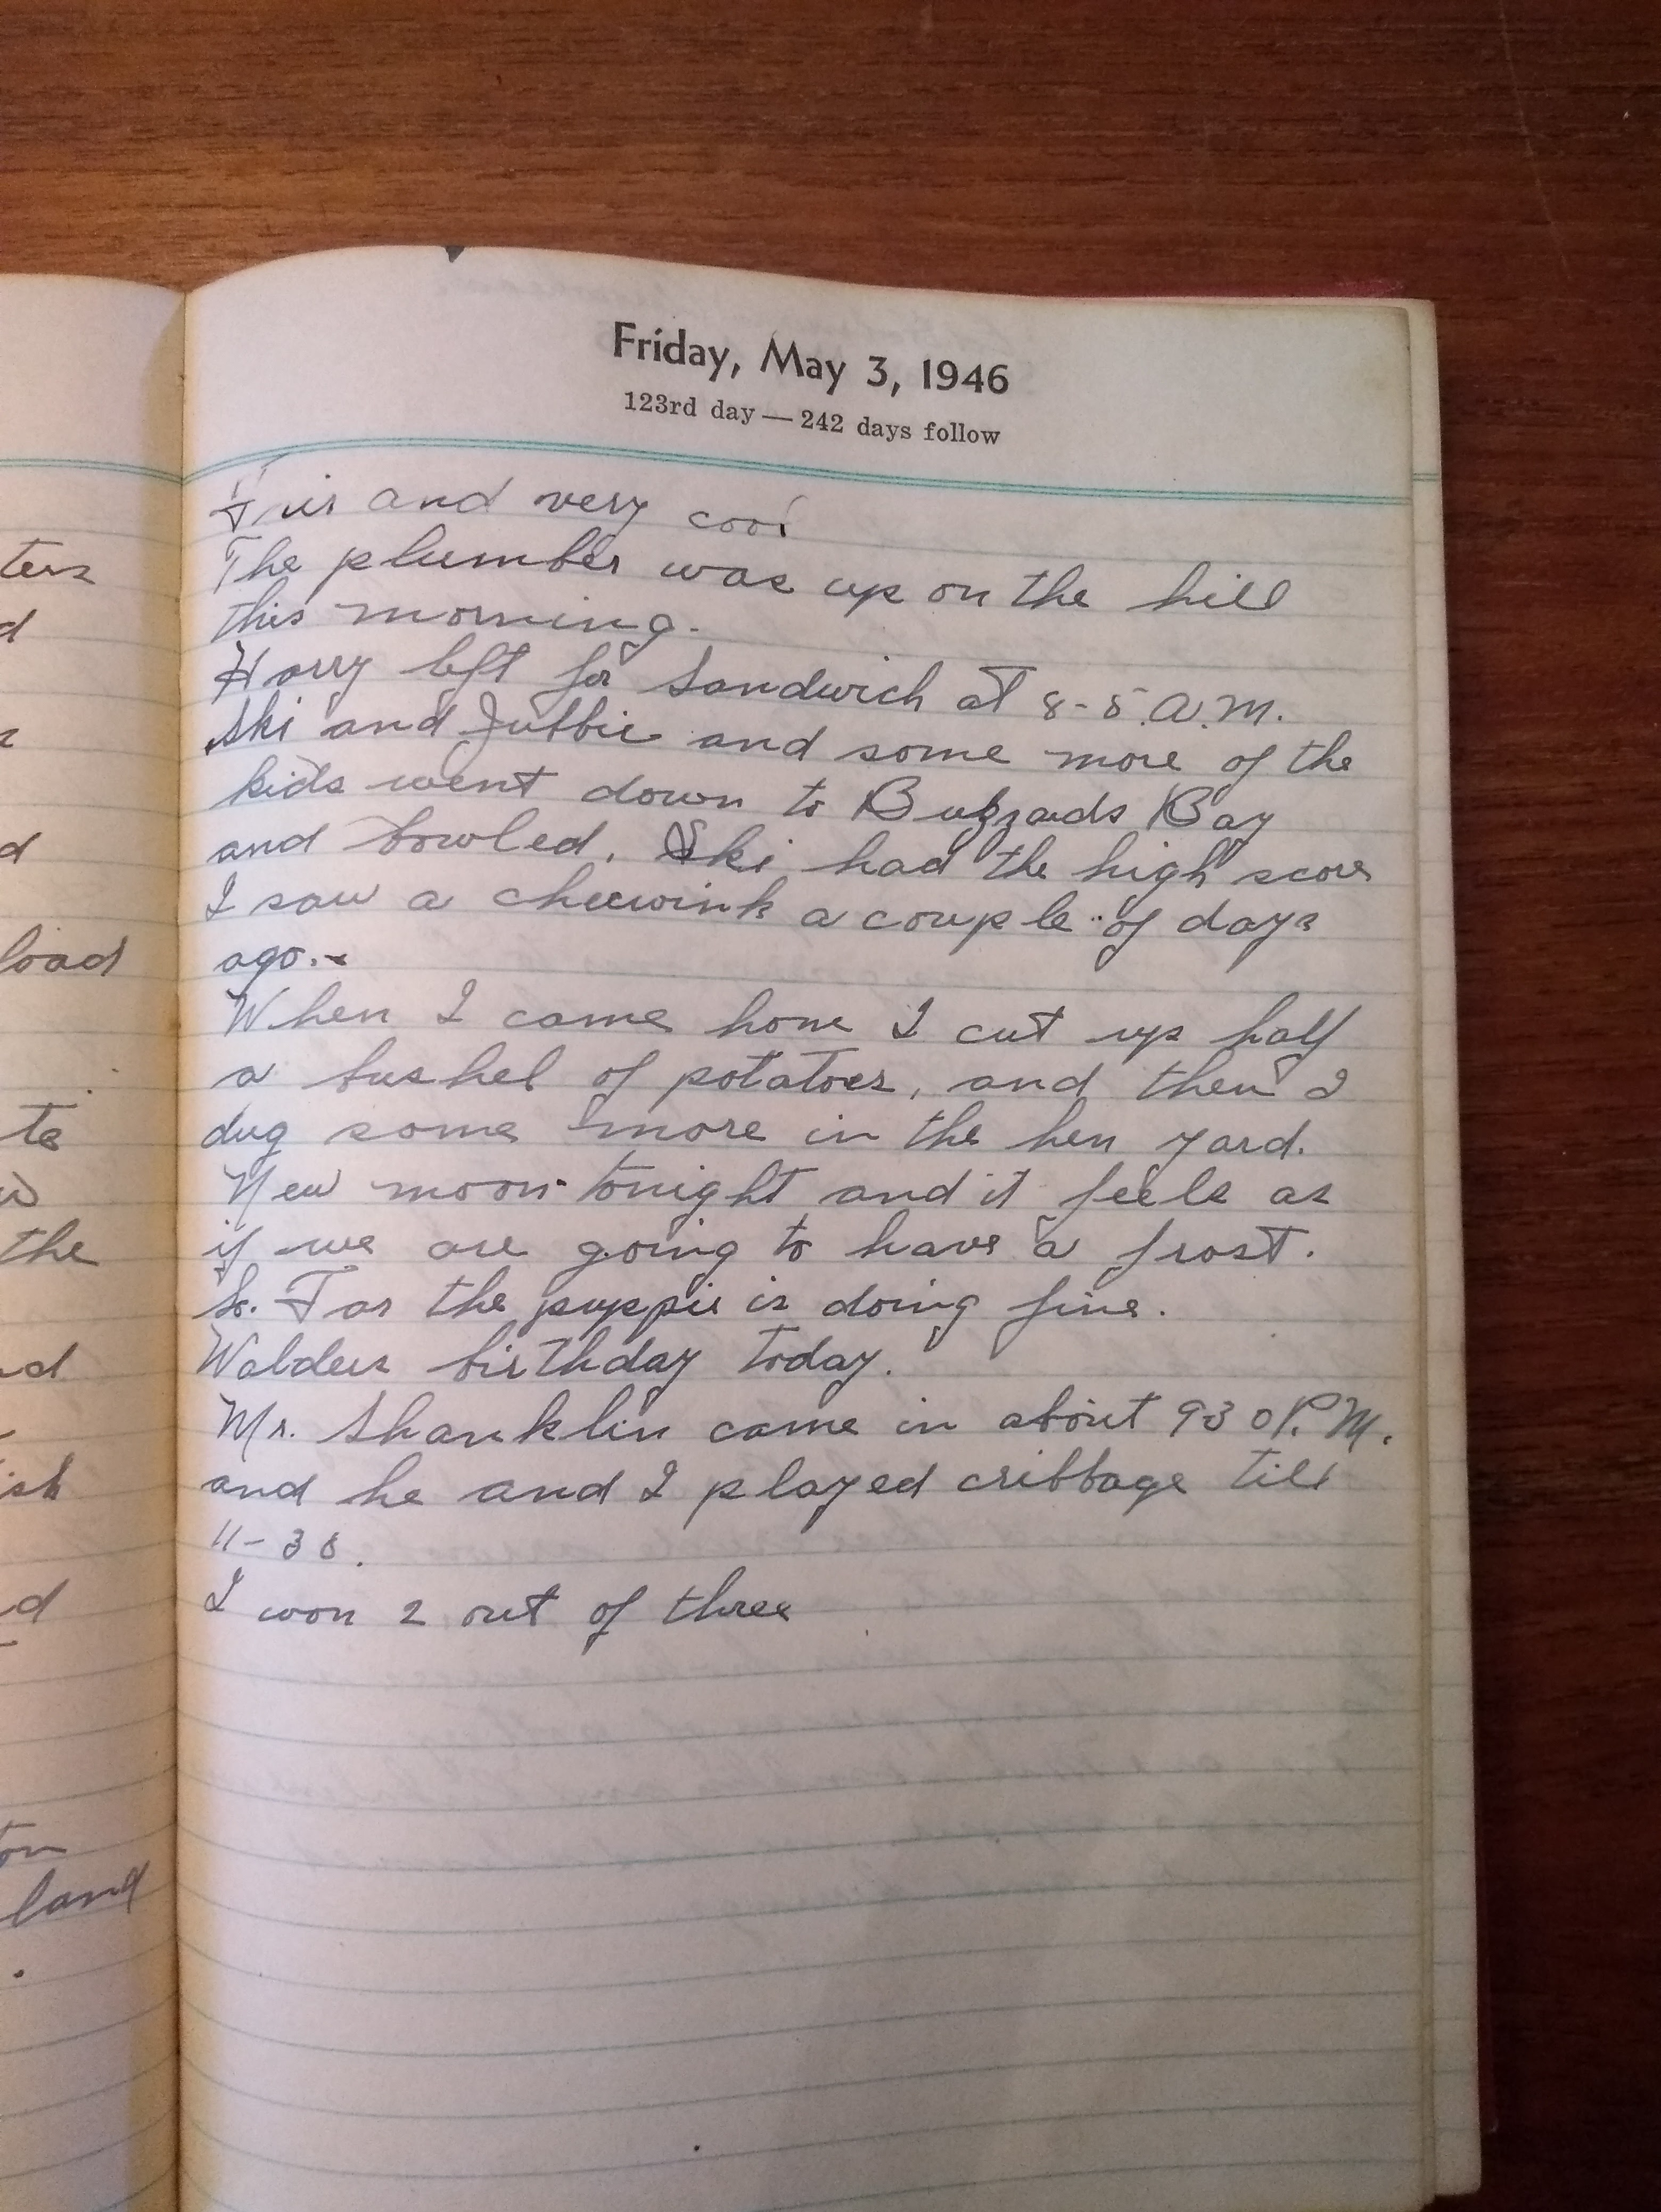 ters
d
d
load
te
the
d
ish
d
ton
land
.
Friday, May 3, 1946
123rd day — 242 days follow
Fair and very cool
The plumber was up on the hill
this morning.
Harry left for Sandwich at 8-5 A.M.
Ski and and some more of the
kids went down to Buzzards Bay
and bowled. Ski had the high score
I saw a cheewink a couple of days
ago.
When I came home I cut up half
a bushel of potatoes, and then I
dug some more in the hen yard.
New moon tonight and it feels as
if we are going to have a frost.
So. Far the puppie is doing fine.
birthday today.
Mr. Shanklin came in about 930 P.M.
and he and I played cribbage till
11-30.
I won 2 out of three